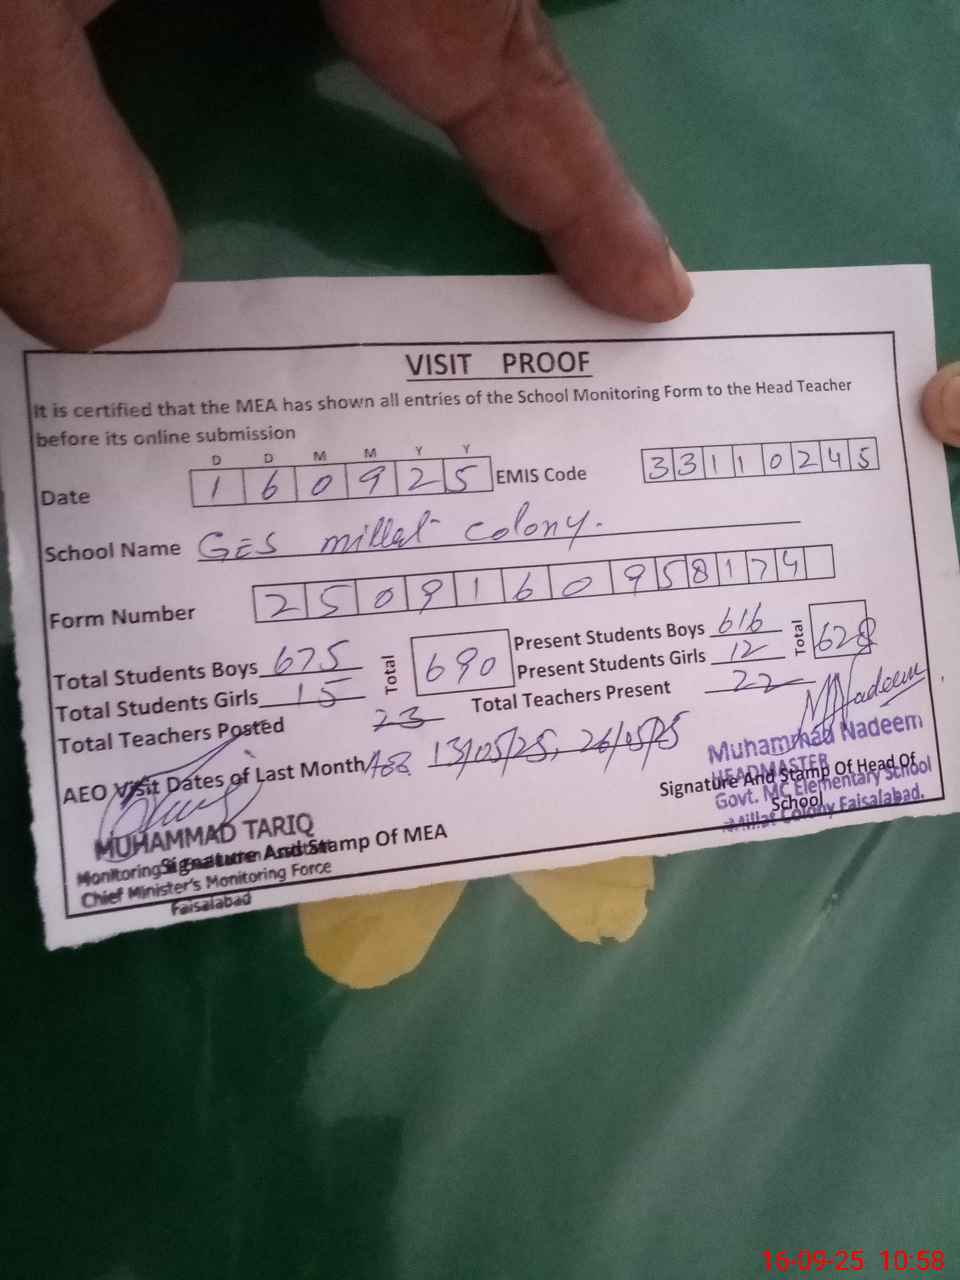 VISIT PROOF
It is certified that the MEA has shown all entries of the School Monitoring Form to the Head Teacher
before its online submission
D D M M Y Y
Date 1 6 0 9 2 5 EMIS Code 3 3 1 1 0 2 4 5
School Name GES millat colony.
Form Number 2 5 0 9 1 6 0 9 5 8 1 7 4
Total Students Boys 675 Total 690 Present Students Boys 616 Total 628
Total Students Girls 15 Present Students Girls 12
Total Teachers Posted 23 Total Teachers Present 22
AEO Visit Dates of Last Month 13/05/25, 26/05/25
Nadeem
Muhammad Nadeem
HEADMASTER
Signature And Stamp Of Head Of
Govt. MC Elementary School
School
Millat Colony Faisalabad.
MUHAMMAD TARIQ
Signature And Stamp Of MEA
Monitoring Assistant
Chief Minister's Monitoring Force
Faisalabad
16-09-25 10:58